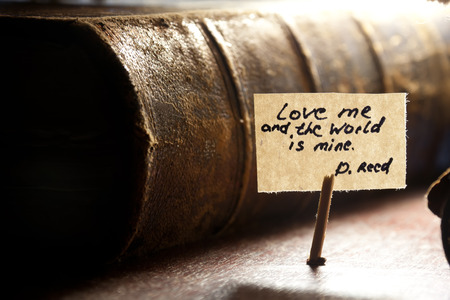 Love me
and the world
is mine.
D. Reed